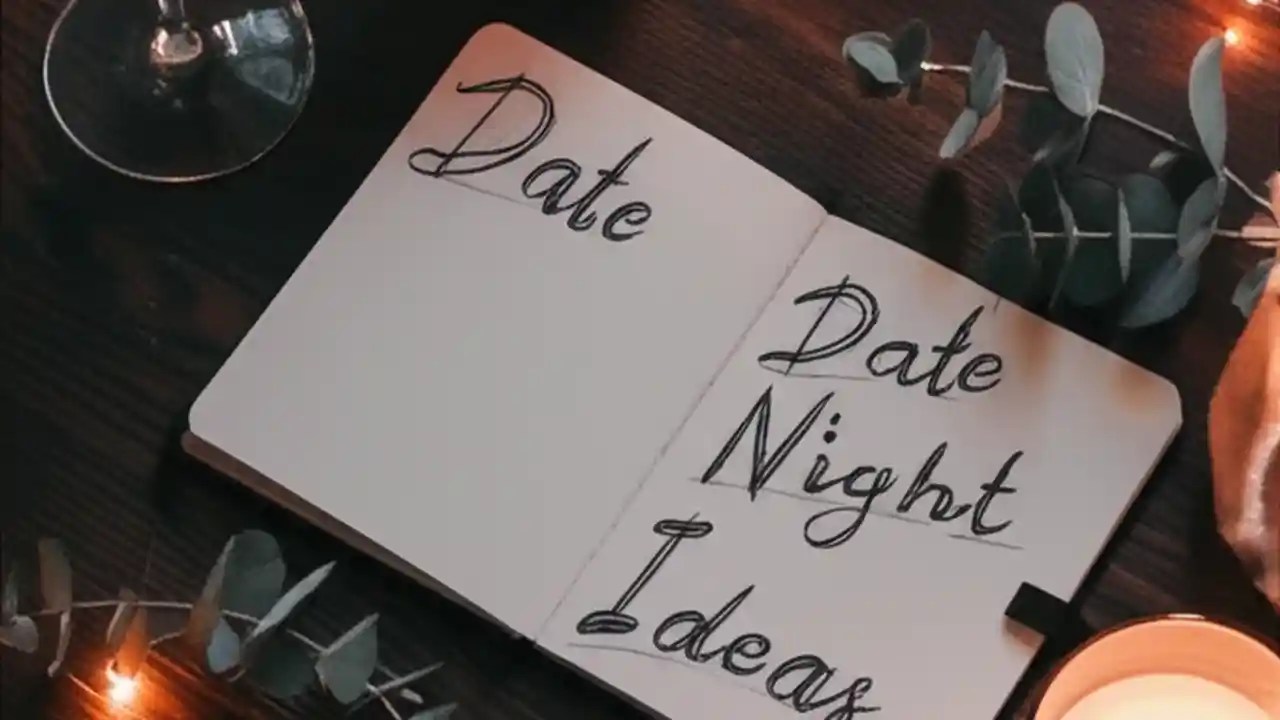 Date
Date
Night
Ideas